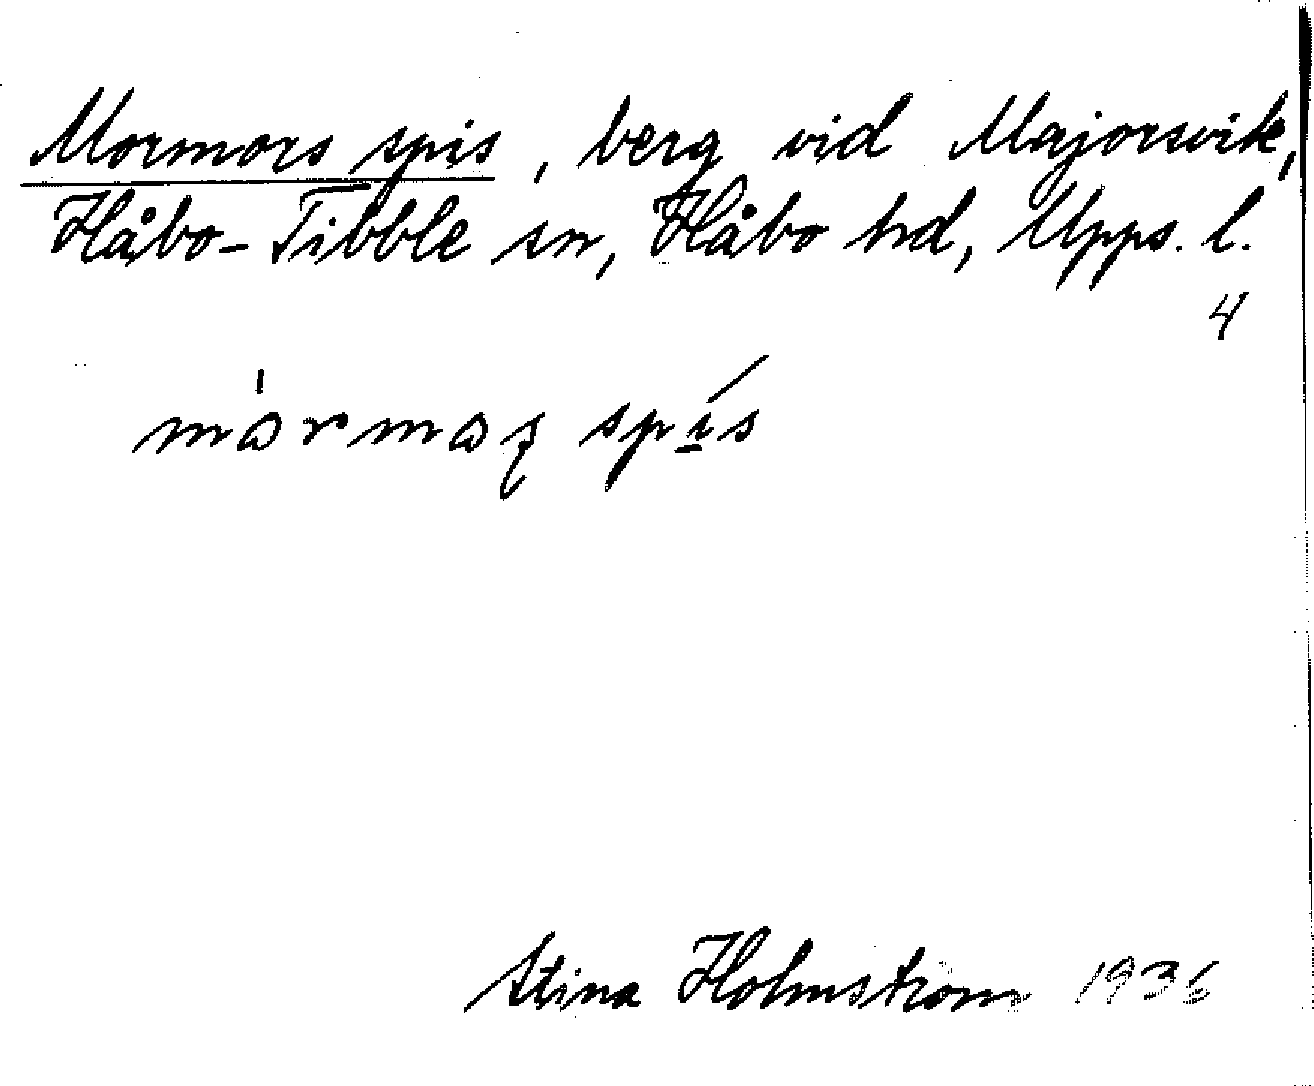 Mormors spis, berg vid Majorsvik,
Håbo-Tibble sn, Håbo hd, Upps. l.
4
mormas spis
Stina Holmström 1936